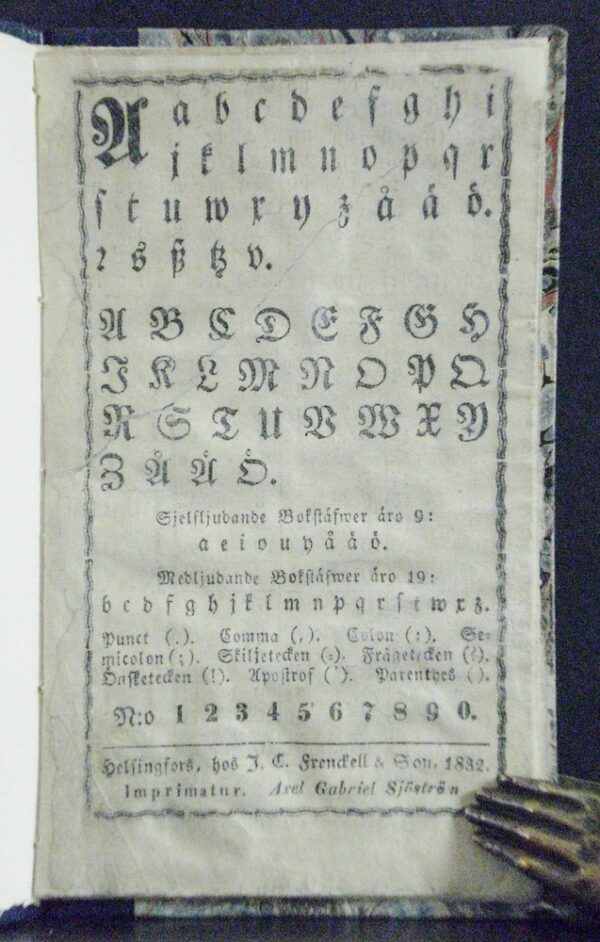 A a b c d e f g h i
j k l m n o p q r
ſ t u w x y z å ä ö.
ꝛ s ß tz v.
A B C D E F G H
I K L M N O P Q
R S T U V W X Y
Z Å Ä Ö.
Sjelfljudande Bokſtäfwer äro 9:
a e i o u y å ä ö.
Medljudande Bokſtäfwer äro 19:
b c d f g h j k l m n p q r ſ t w x z.
Punct (.). Comma (,). Colon (:). Se-
micolon (;). Skiljetecken (=). Frågetecken (?).
Önſketecken (!). Apoſtrof ('). Parenthes ().
N:o 1 2 3 4 5 6 7 8 9 0.
Helſingfors, hos J. C. Frenckell & Son, 1832.
Imprimatur. Axel Gabriel Sjöström